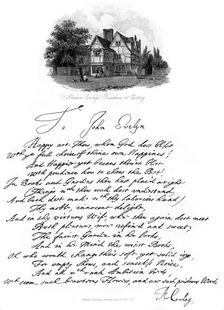 To John Evelyn
Happy art Thou whom God has blest
With ye full choice of thine own Happiness;
And Happier yet because thou'rt blest
With prudence how to chuse the Best!
In Books and Gardens thou hast plac'd aright
Things wch thou well dost understand,
And both dost make wth thy laborious hand
Thy noble, innocent delight,
And in thy virtuous Wife, where thou again dost meet
Both pleasures more refin'd and sweet;
The fairest Garden in her Looks,
And in her Mind the wisest Books.
Oh who would change these soft, yet solid joys
For empty Shows and senceless Noise,
And all wch rank Ambition breeds
wch seem such beauteous Flowers, and are such poisnous Weeds
A: Cowley